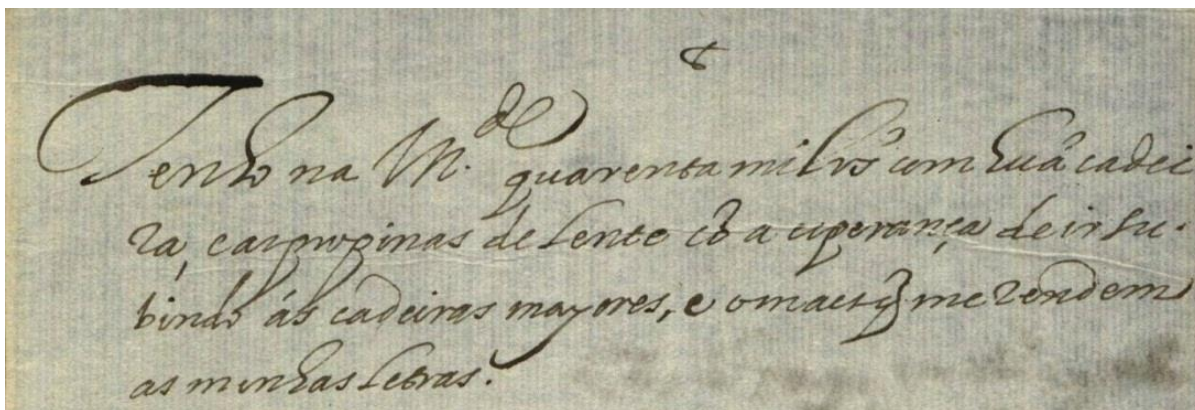 Tenho na Vn.de quarenta mil rs com huã cadei
ra, e as propinas de Lente cõ a esperança de ir su-
bindo ás cadeiras mayores, e o maes q̃ me rendem
as minhas Letras.